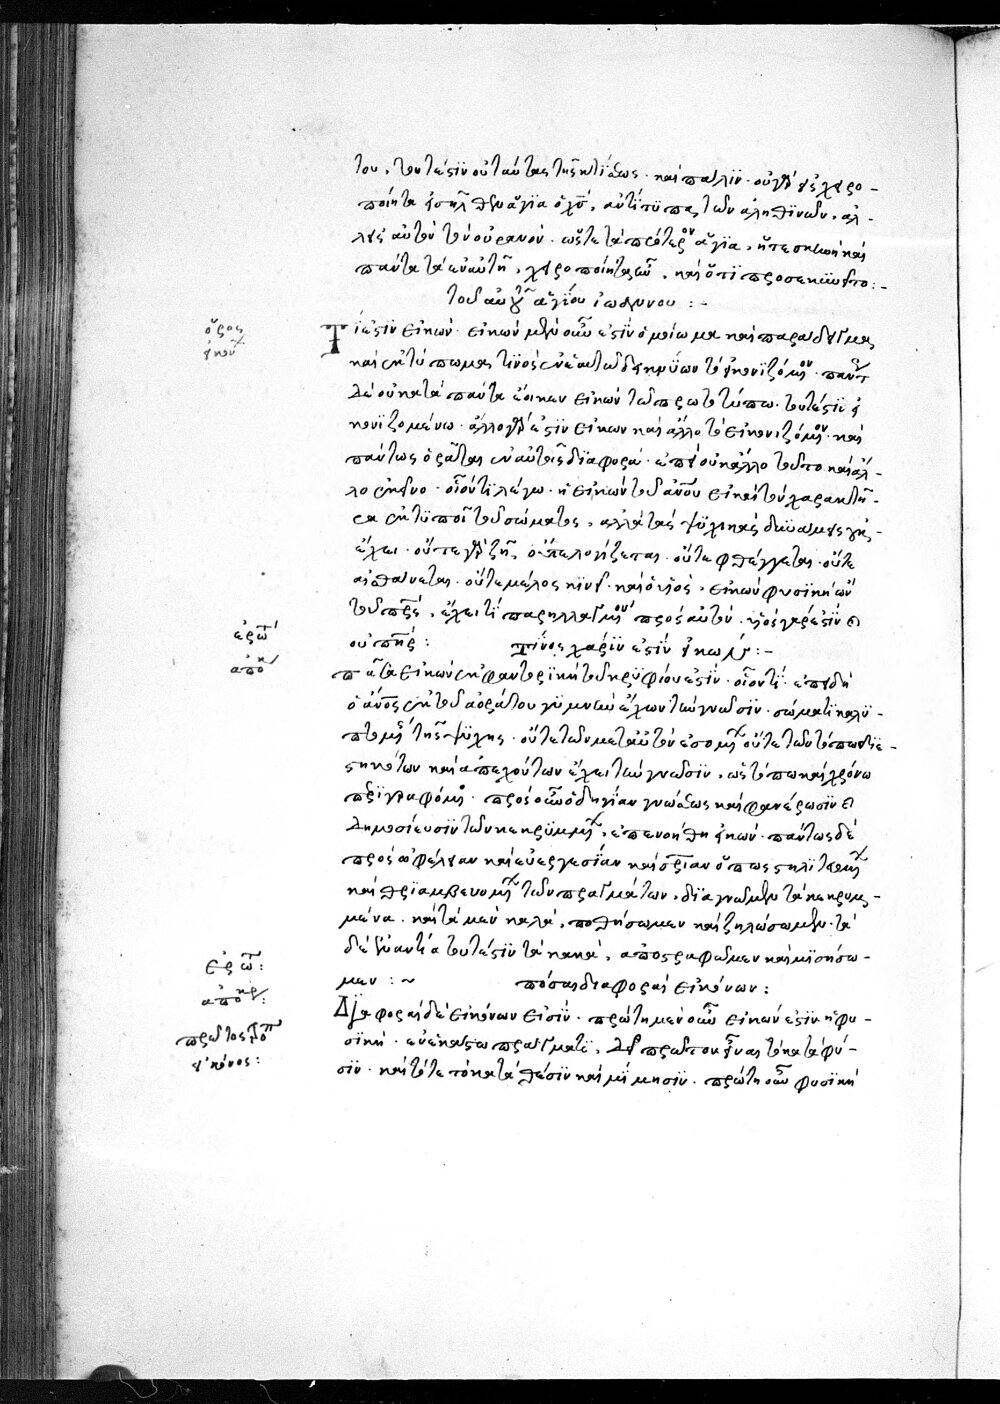 του, τουτέστιν οὐ ταύτας τῆς κτίσεως· καὶ πάλιν· οὐ γὰρ εἰς χειρο-
ποίητα εἰσῆλθεν ἅγια ὁ χς, ἀντίτυπα τῶν ἀληθινῶν, ἀλ-
λ' εἰς αὐτὸν τὸν οὐρανόν· ὥστε τὰ πρότερον ἅγια, ἥτε σκηνὴ καὶ
πάντα τὰ ἐν αὐτῇ, χειροποίητα, καὶ ὅτι προσεκυνεῖτο:-
τοῦ αὐτοῦ ἁγίου ἰωάννου :-
Τί ἐστιν εἰκών· εἰκὼν μὲν οὖν ἐστὶν ὁμοίωμα καὶ παράδειγμα
καὶ ἐκτύπωμά τινος ἐν ἑαυτῷ δεικνύων τὸ εἰκονιζόμενον· πάντ
δὲ οὐ κατὰ πάντα ἔοικεν εἰκὼν τῷ πρωτοτύπω· τουτέστι εἰ
κονιζομένω· ἄλλο γάρ ἐστιν εἰκὼν καὶ ἄλλο τὸ εἰκονιζόμενον· καὶ
πάντως ὁρᾶται ἐν αὐτοῖς διαφορά· ἐπεὶ οὐκ ἄλλο τοῦτο καὶ ἄλ-
λο ἐκεῖνο· οἷόν τι λέγω· ἡ εἰκὼν τοῦ ἀνου εἰ καὶ τὸν χαρακτῆ-
ρα ἐκτυποῖ τοῦ σώματος, ἀλλὰ τὰς ψυχικὰς δυνάμεις οὐκ
ἔχει· οὔτε γὰρ ζῆ, οὔτε λογίζεται· οὔτε φθέγγεται· οὔτε
αἰσθάνεται· οὔτε μέλος κινεῖ· καὶ ὁ υἱός, εἰκὼν φυσικὴ ὢν
τοῦ πρς, ἔχει τὶ παρηλλαγμένον πρὸς αὐτόν· υἱὸς γάρ ἐστιν
οὐ πηρ: Τίνος χάριν ἐστὶν εἰκών:-
Πᾶσα εἰκὼν ἐκφαντορικὴ τοῦ κρυφίου ἐστίν· οἷόν τι· ἐπειδὴ
ὁ ἀνος ἐκ τοῦ ἀοράτου γυμνὴν ἔχων τὴν γνῶσιν· σώματι καλυ-
πτομένης τῆς ψυχῆς· οὔτε τῶν μετ' αὐτὸν ἐσομένων οὔτε τῶν τόπω διε-
στηκότων καὶ ἀπεχόντων ἔχει τὴν γνῶσιν, ὡς τόπω καὶ χρόνω
περιγραφόμενος· πρὸς οὖν ὁδηγίαν γνώσεως καὶ φανέρωσιν
δημοσίευσιν τῶν κεκρυμμένων, ἐπενοήθη εἰκών· πάντως δὲ
πρὸς ὠφέλειαν καὶ εὐεργεσίαν καὶ σριαν ὅπως στηλιτευομένων
καὶ θριαμβευομένων τῶν πραγμάτων, διαγνῶμεν τὰ κεκρυμ-
μένα· καὶ τὰ μὲν καλά, ποθήσωμεν καὶ ζηλώσωμεν· τὰ
δὲ ἐναντία τουτέστιν τὰ κακά, ἀποστραφῶμεν καὶ μισήσω-
μεν :~ πόσαι διαφοραὶ εἰκόνων:
Διαφοραὶ δὲ εἰκόνων εἰσίν· πρώτη μὲν οὖν εἰκών ἐστιν ἡ φυ-
σική· ἐν ἑκάστω πράγματι, δεῖ πρῶτον εἶναι τὸ κατὰ φύ-
σιν· καὶ τότε τὸ κατὰ θέσιν καὶ μίμησιν· πρώτη οὖν φυσικὴ
ὅρος
ἐρώ
ἀπό
ἐρώ:
ἀπόκρ:
πρῶτος
εἰκόνος: